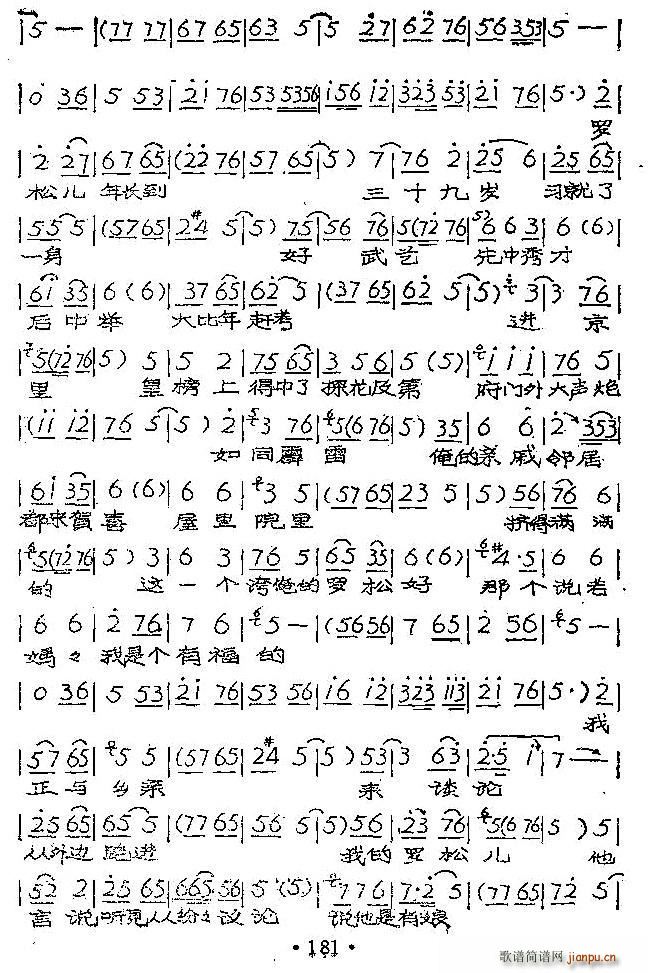 5 — | (77 77 | 67 65 | 63 5 | 5 27 | 62 76 | 56 353 | 5 — |
0 36 | 5 53 | 21 76 | 53 5356 | i56 12 | 323 53 | 21 76 | 5·) 2 |
罗
2 27 | 67 65 | (22 76 | 57 65 | 5) 7 | 76 2 | 25 6 | 25 65 |
松儿 年长到 三十九岁 习就了
55 5 | (57 65 | 2#4 5 | 5) 75 | 56 76 | 5(72 76 | 6 6 3 | 6 (6) |
一身 好武艺 先中秀才
6i 35 | 6 (6) | 37 65 | 62 5 | (37 65 | 62 5 | 5) 3 | 3 76 |
后中举 大比年赶考 进京
5(72 76 | 5) 5 | 5 2 | 75 65 | 3 56 | 5 (5) | i i i | 76 5 |
里 望榜上得中了探花及第 府门外大声炮
(ii i2 | 76 5 | 5) 2 | 3 76 | 5(6 76 | 5) 35 | 6 6 | 2· 353 |
如同霹雷 俺的亲戚邻居
6i 35 | 6 (6) | 6 6 | 3 5 | (57 65 | 23 5 | 5) 56 | 76 6 |
都来贺喜 屋里院里 挤得满满
5(72 76 | 5) 3 | 6 3 | 76 5 | 65 35 | 6 (6) | #4·5 | 6 6 |
的 这一个夸俺的罗松好 那个说老
6 6 | 2 76 | 7 6 | 5 — | (56 56 | 7 65 | 2 56 | 5 — |
妈々 我是个有福的
0 36 | 5 53 | 21 76 | 53 56 | i6 i2 | 323 113 | 21 76 | 5·) 2 |
我
57 65 | 5 5 | (57 65 | 2#4 5 | 5) 53 | 3 63 | 2·5 i | 7 — |
正与乡亲 来谈论
25 65 | 65 5 | (77 65 | 56 5 | 5) 56 | 23 76 | 5(6 76 | 5) 5 |
从外边跑进 我的罗松儿 他
52 2 | 25 65 | 665·56 | 5·(5) | 77 6 | 7·2 5 | (77 65 | 72 5 |
言说听见人人纷々议论 说他是有娘
·181·
歌谱简谱网
jianpu.cn